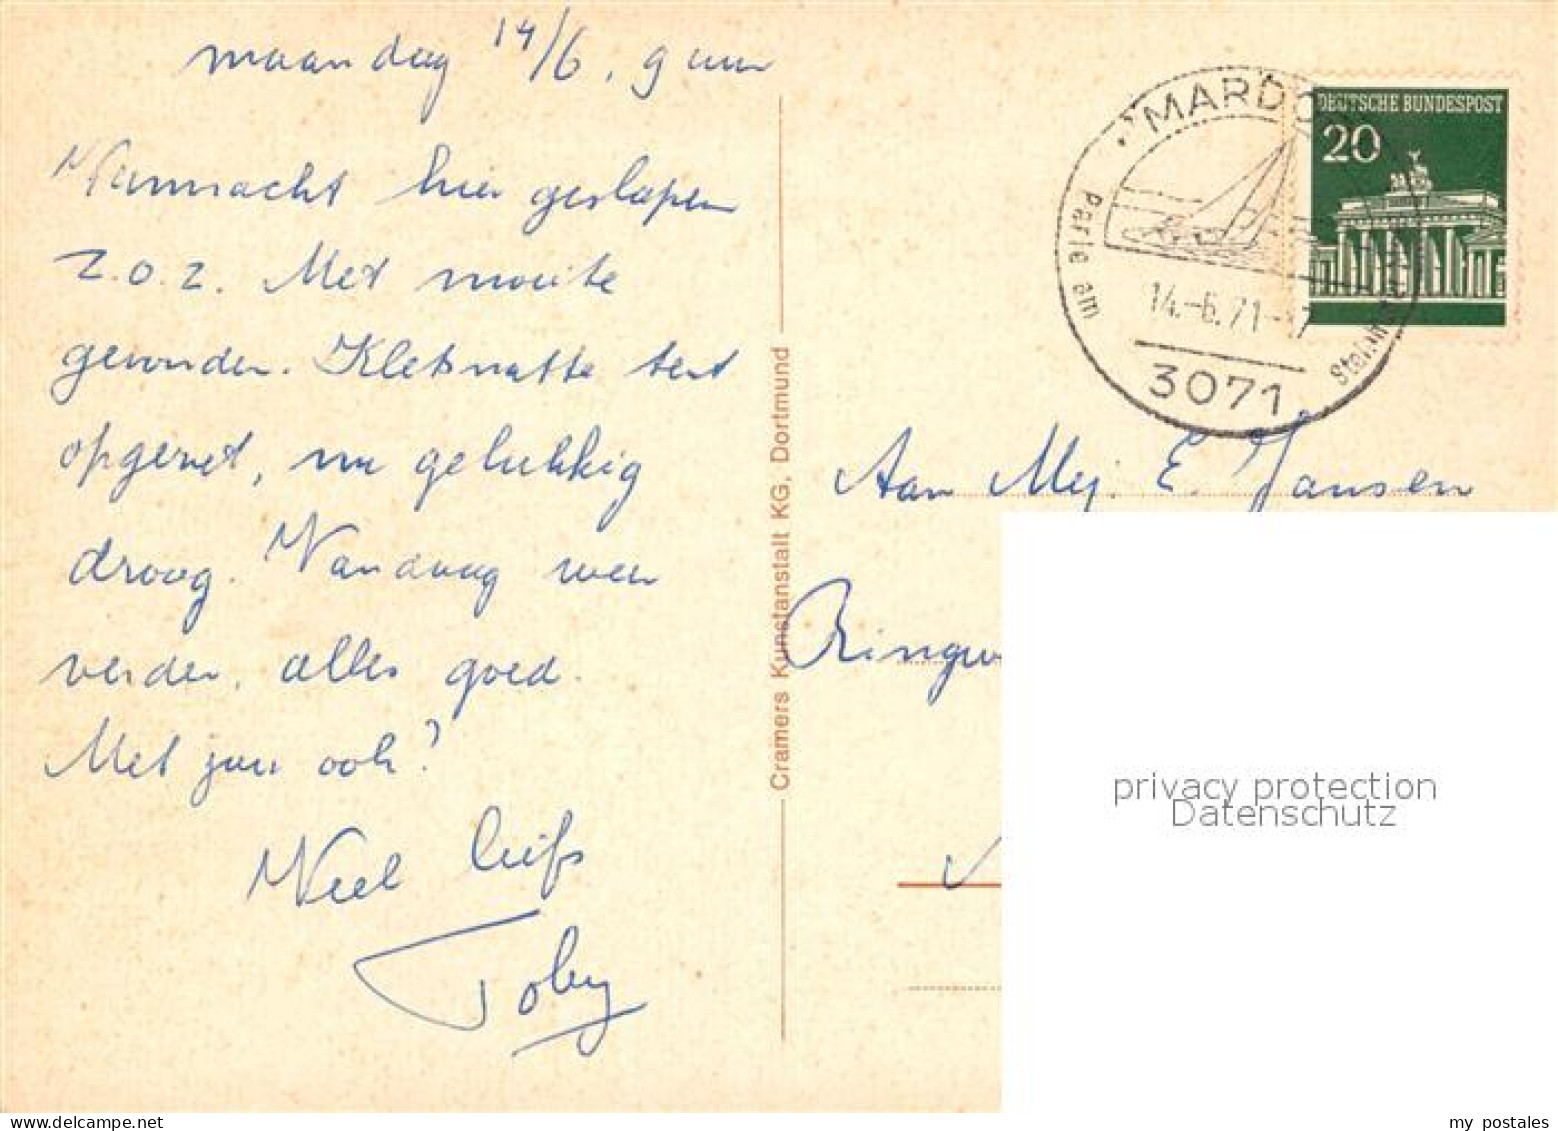 maandag 14/6, 9 uur
Vannacht hier geslapen
z.o.z. Met moeite
gevonden. Kletsnatte tent
opgezet, nu gelukkig
droog. Vandaag weer
verder, alles goed.
Met jou ook?
Veel liefs
Toby
Cramers Kunstanstalt KG, Dortmund
MARDO
Perle am
Steinh
14.-6.71-17
3071
DEUTSCHE BUNDESPOST
20
Aan Mej. E. Jansen
Ringw
privacy protection
Datenschutz
my postales